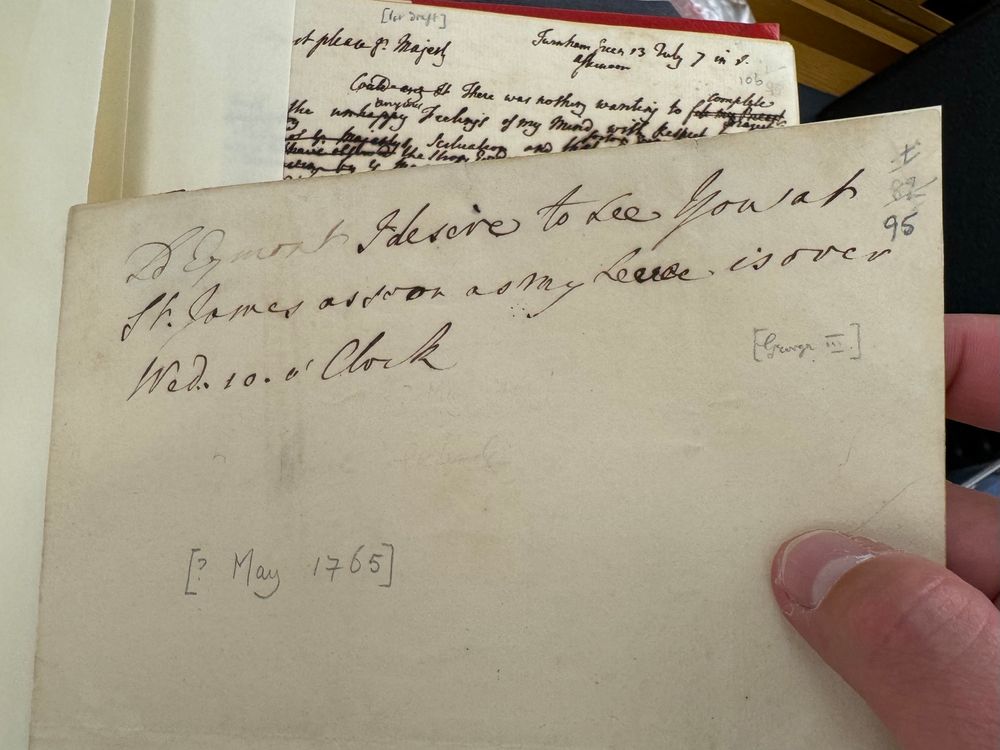 [1st draft]
please yr. Majesty
Turnham Green 13 July 7 in
afternoon
106
95
It There was nothing wanting to complete
the unhappy anxious Feelings of my Mind with Respect
Majestys Situation and that
Ld Egmont I desire to see You at
St. James as soon as my Levee is over
Wed. 10. o' Clock
82
95
[George III]
[? May 1765]